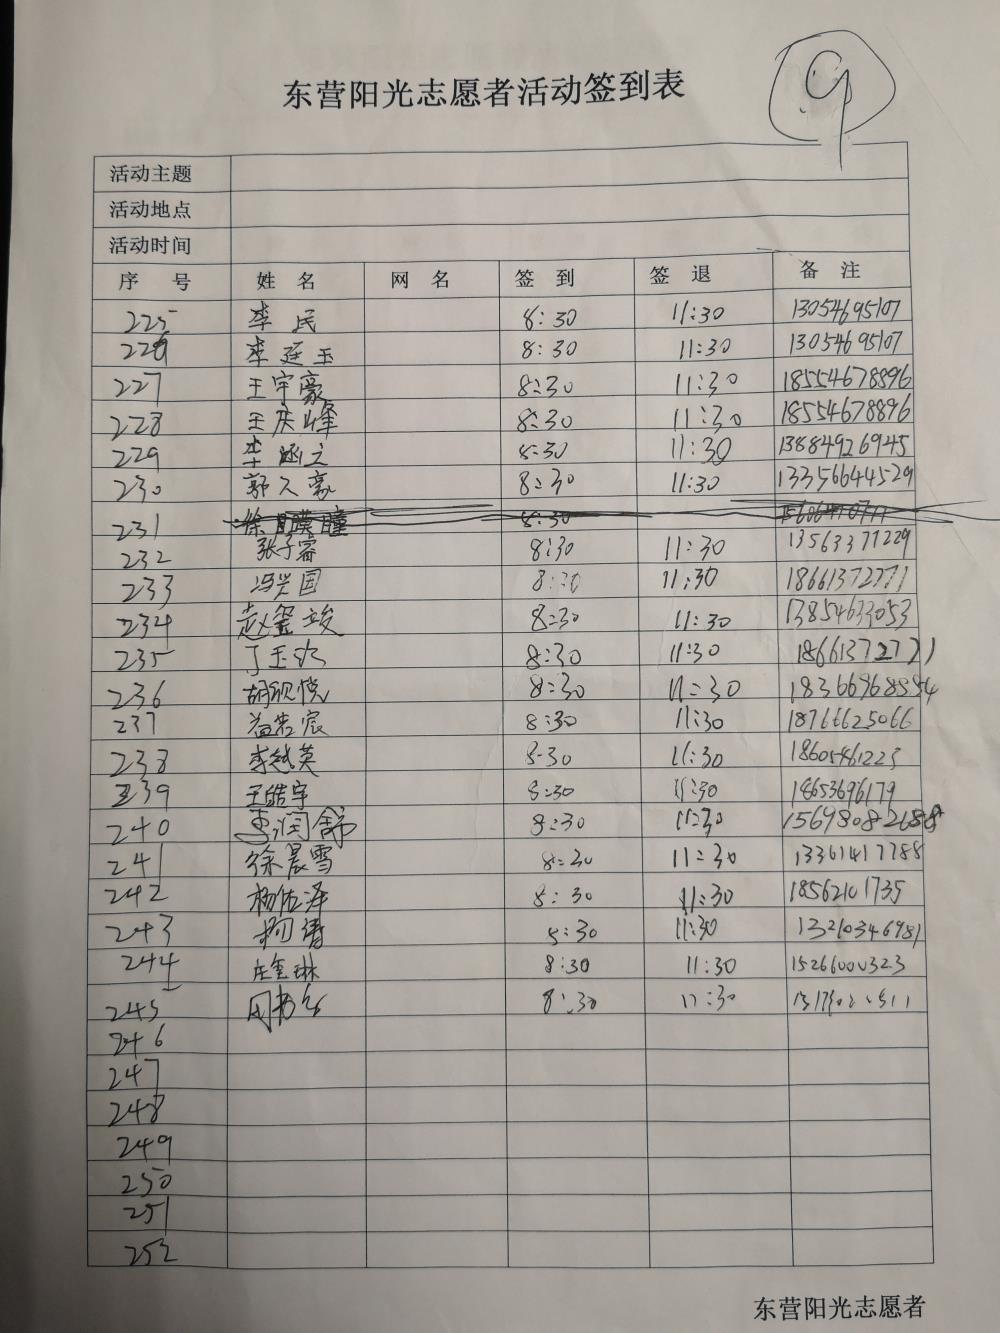 东营阳光志愿者活动签到表
9
活动主题
活动地点
活动时间
序 号 姓 名 网 名 签 到 签 退 备 注
225 李民 8:30 11:30 13054695107
226 李延玉 8:30 11:30 13054695107
227 王宇豪 8:30 11:30 18554678896
228 王庆峰 8:30 11:30 18554678896
229 李涵之 8:30 11:30 13884926945
230 郭久豪 8:30 11:30 13356644529
231 8:30
232 张子睿 8:30 11:30 13563371229
233 冯兴国 8:30 11:30 18661372771
234 赵玺竣 8:30 11:30 13854633053
235 丁玉 8:30 11:30 18661372771
236 胡欣悦 8:30 11:30
237 若宸 8:30 11:30 18766625066
238 李越英 8:30 11:30 18605461223
239 王皓宇 8:30 11:30 18653696179
240 李润舒 8:30 11:30
241 徐晨雪 8:30 11:30 13361417788
242 杨佐泽 8:30 11:30 18562101735
243 8:30 11:30 13210346981
244 庄奎琳 8:30 11:30 15266000323
245 8:30 11:30
246
247
248
249
250
251
252
东营阳光志愿者